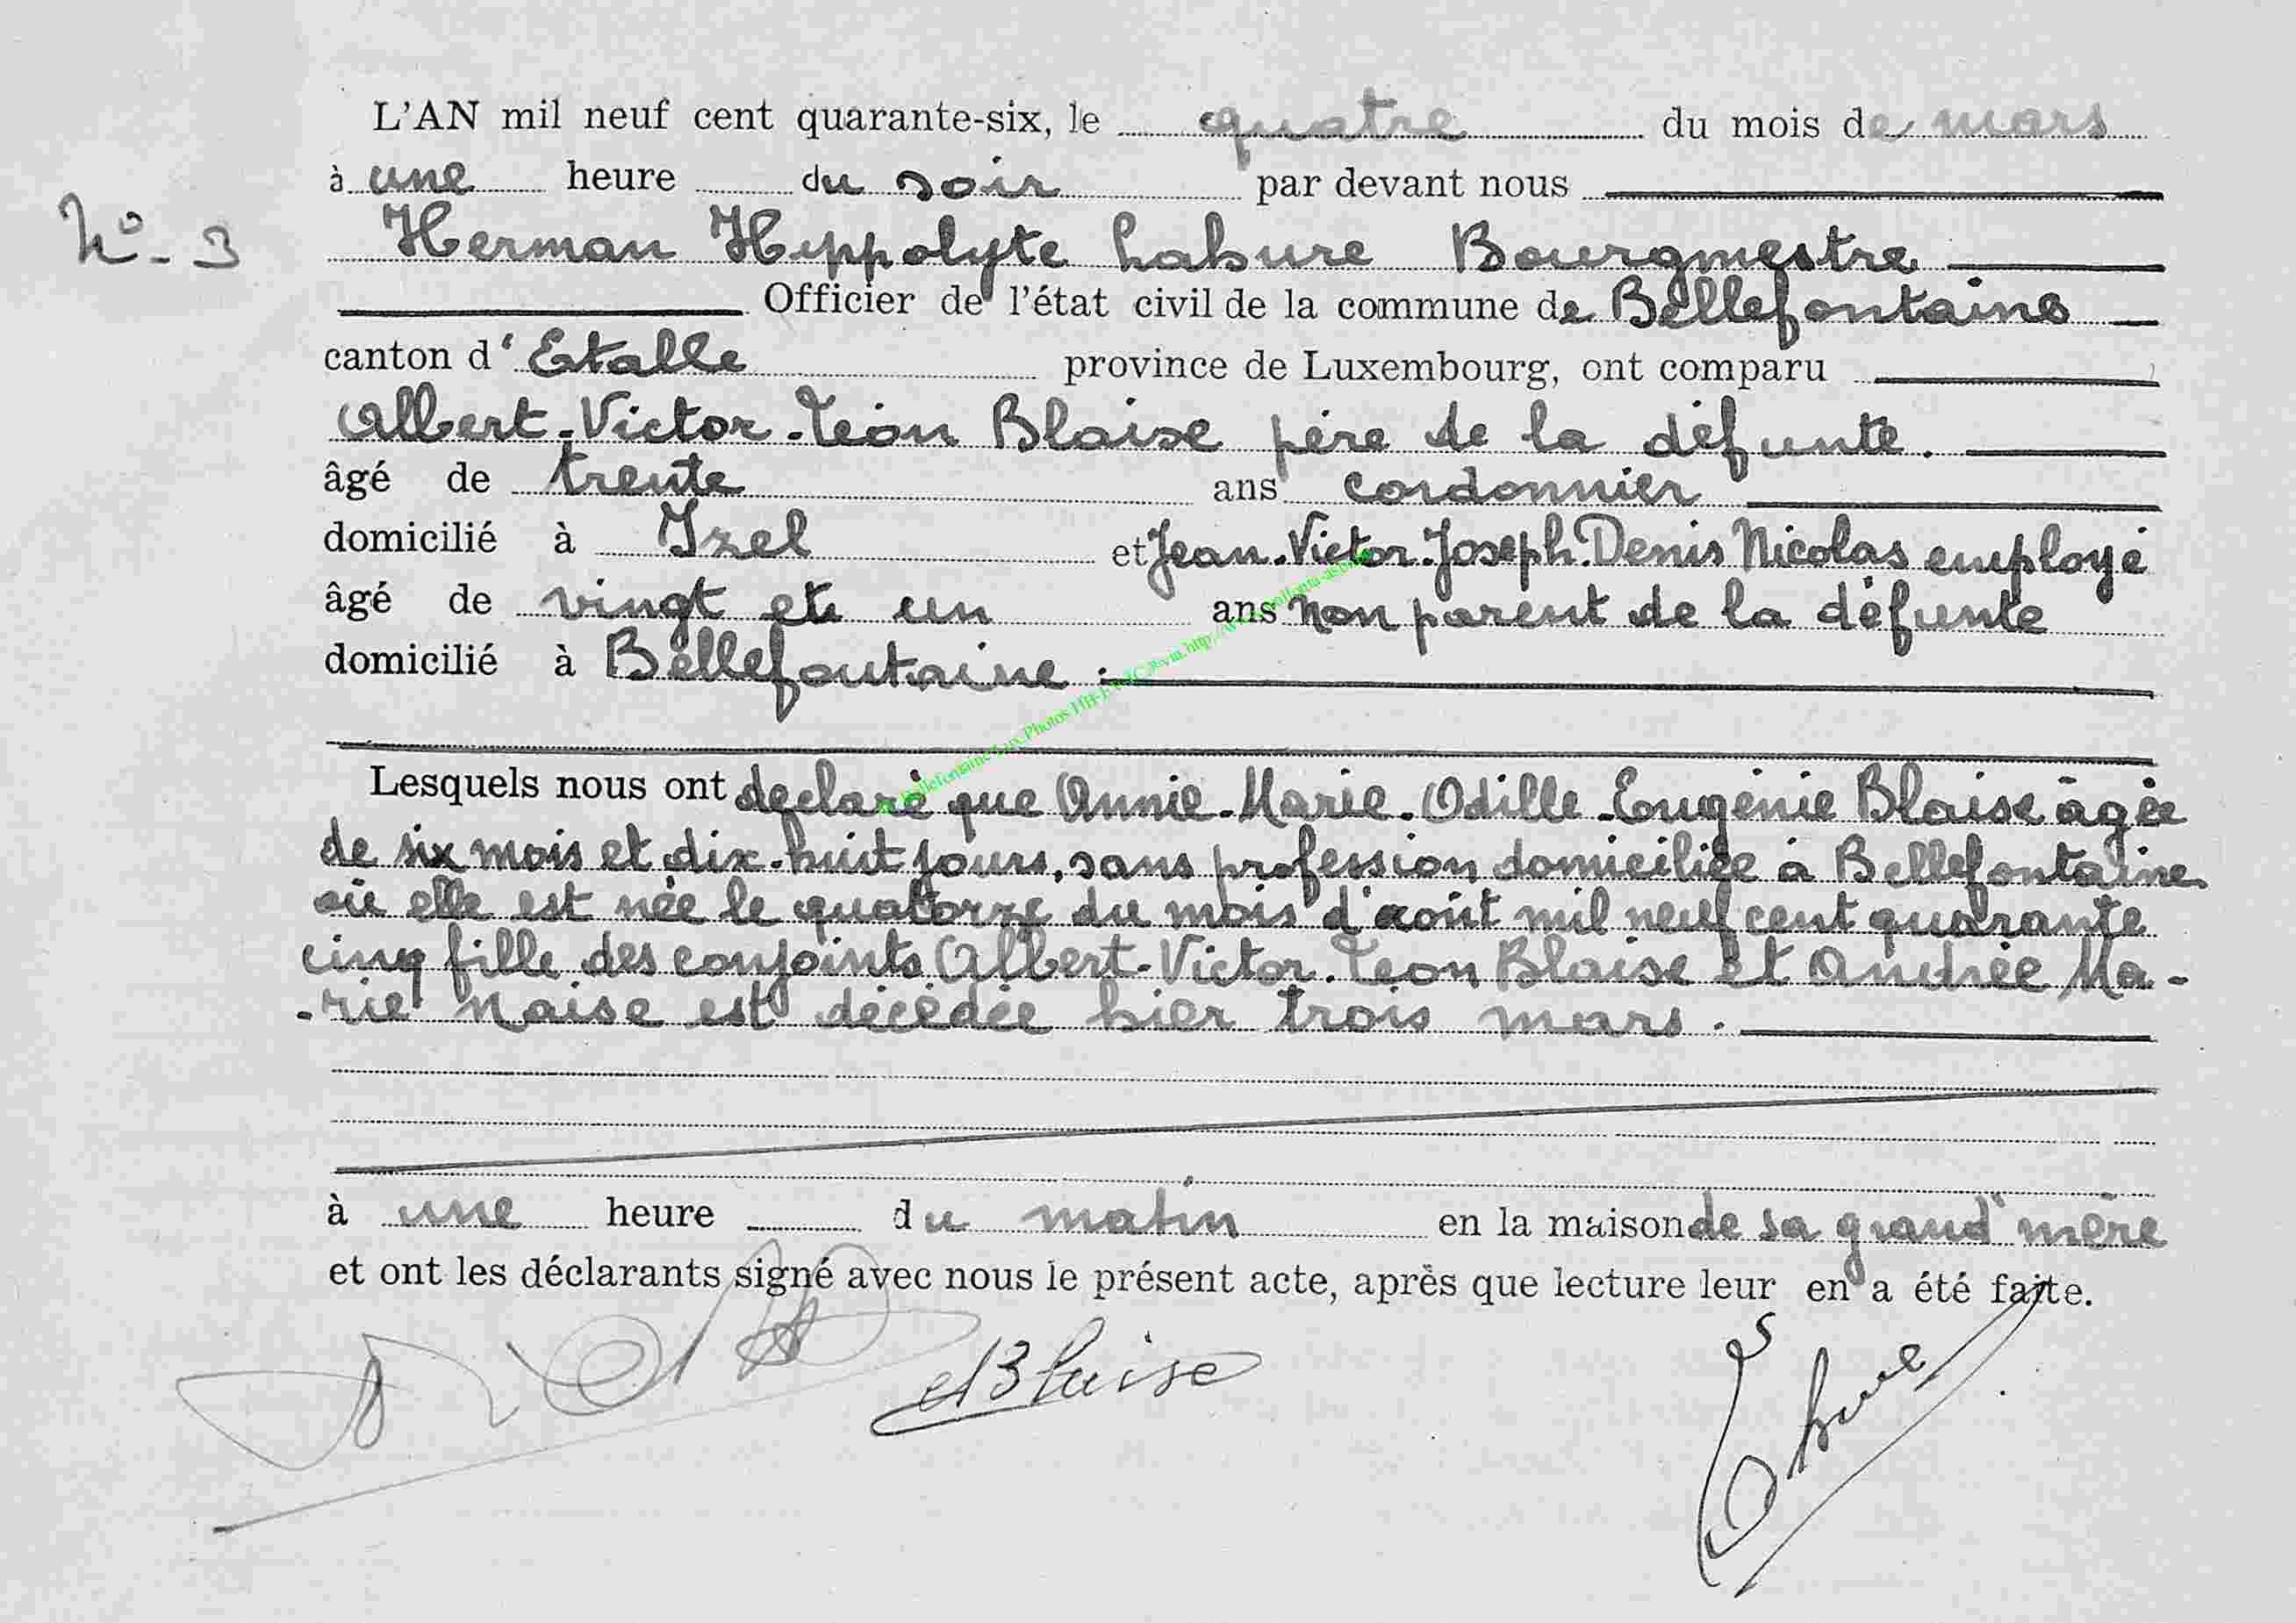 L'AN mil neuf cent quarante-six, le quatre du mois de mars
à une heure du soir par devant nous
N° - 3
Herman Hippolyte Labure Bourgmestre
Officier de l'état civil de la commune de Bellefontaine
canton d'Etalle province de Luxembourg, ont comparu
Albert-Victor-Léon Blaise père de la défunte.
âgé de trente ans cordonnier
domicilié à Izel et Jean-Victor-Joseph-Denis Nicolas employé
âgé de vingt et un ans non parent de la défunte
domicilié à Bellefontaine.
Lesquels nous ont déclaré que Annie-Marie-Odille-Eugénie Blaise âgée
de six mois et dix-huit jours, sans profession domiciliée à Bellefontaine
où elle est née le quatorze du mois d'août mil neuf cent quarante
cinq fille des conjoints Albert-Victor-Léon Blaise et Andrée Ma-
-rie Naise est décédée hier trois mars.
à une heure du matin en la maison de sa grand'mère
et ont les déclarants signé avec nous le présent acte, après que lecture leur en a été faite.
ABlaise